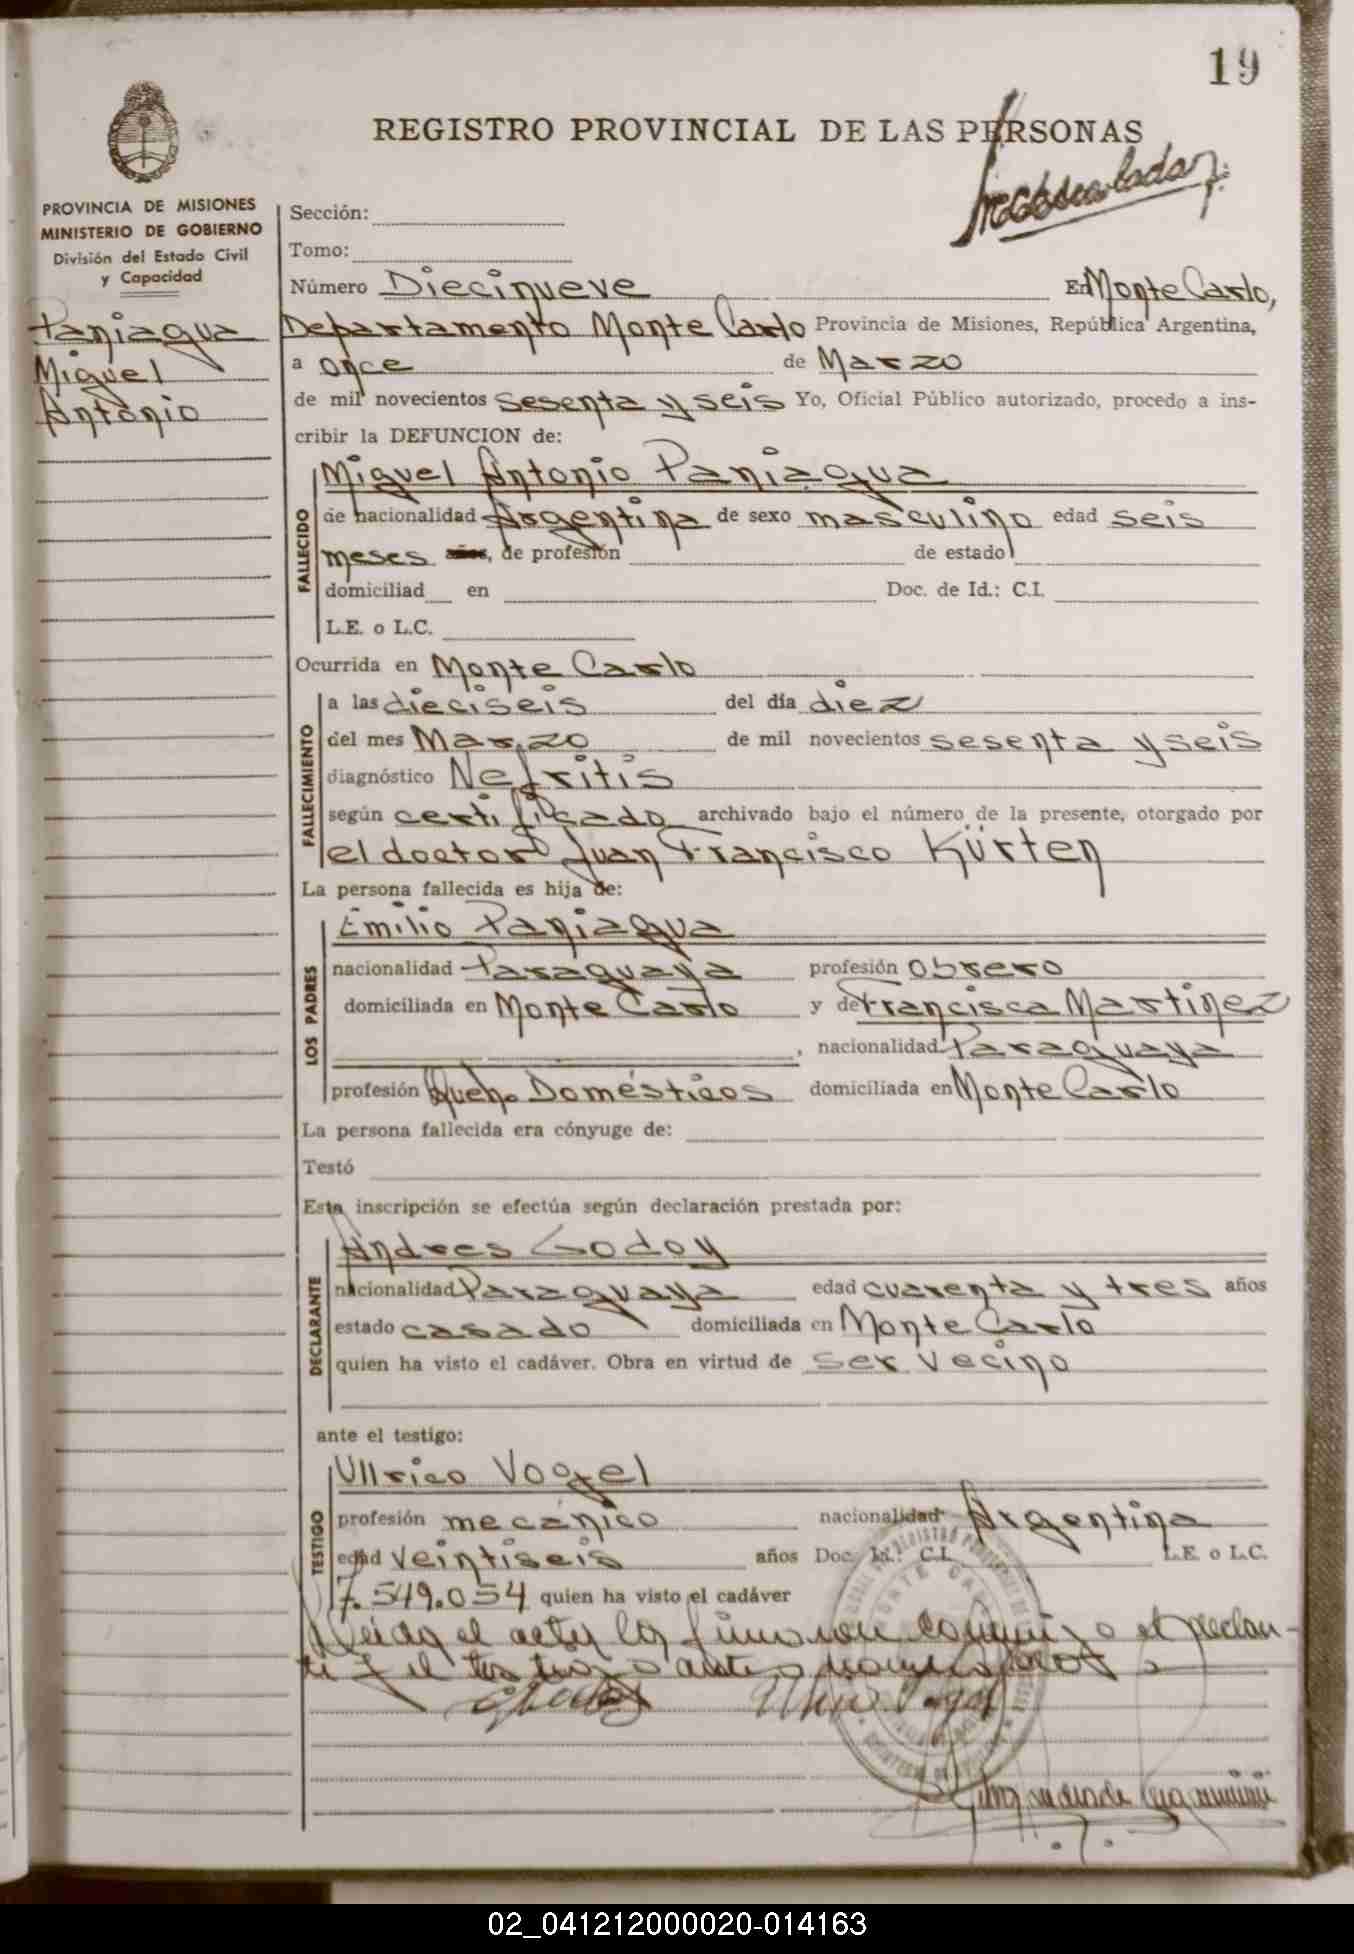 19
REGISTRO PROVINCIAL DE LAS PERSONAS
PROVINCIA DE MISIONES
MINISTERIO DE GOBIERNO
División del Estado Civil
y Capacidad
Paniagua
Miguel
Antonio
Sección:
Tomo:
Número Diecinueve En Monte Carlo,
Departamento Monte Carlo Provincia de Misiones, República Argentina,
a once de Marzo
de mil novecientos sesenta y seis Yo, Oficial Público autorizado, procedo a ins-
cribir la DEFUNCION de:
FALLECIDO
Miguel Antonio Paniagua
de nacionalidad Argentina de sexo masculino edad seis
meses años, de profesión de estado
domiciliad en Doc. de Id.: C.I.
L.E. o L.C.
Ocurrida en Monte Carlo
FALLECIMIENTO
a las dieciseis del día diez
del mes Marzo de mil novecientos sesenta y seis
diagnóstico Nefritis
según certificado archivado bajo el número de la presente, otorgado por
el doctor Juan Francisco Kürten
La persona fallecida es hija de:
LOS PADRES
Emilio Paniagua
nacionalidad Paraguaya profesión obrero
domiciliada en Monte Carlo y de Francisca Martinez
, nacionalidad Paraguaya
profesión Queh. Domésticos domiciliada en Monte Carlo
La persona fallecida era cónyuge de:
Testó
Esta inscripción se efectúa según declaración prestada por:
DECLARANTE
Andres Godoy
nacionalidad Paraguaya edad cuarenta y tres años
estado casado domiciliada en Monte Carlo
quien ha visto el cadáver. Obra en virtud de ser vecino
ante el testigo:
TESTIGO
Ullrico Vogel
profesión mecánico nacionalidad Argentina
edad veintiseis años Doc. Id.: C.I. L.E. o L.C.
7.549.054 quien ha visto el cadáver
Leída el acta, la firman conmigo el declan-
te y el testigo
02_041212000020-014163